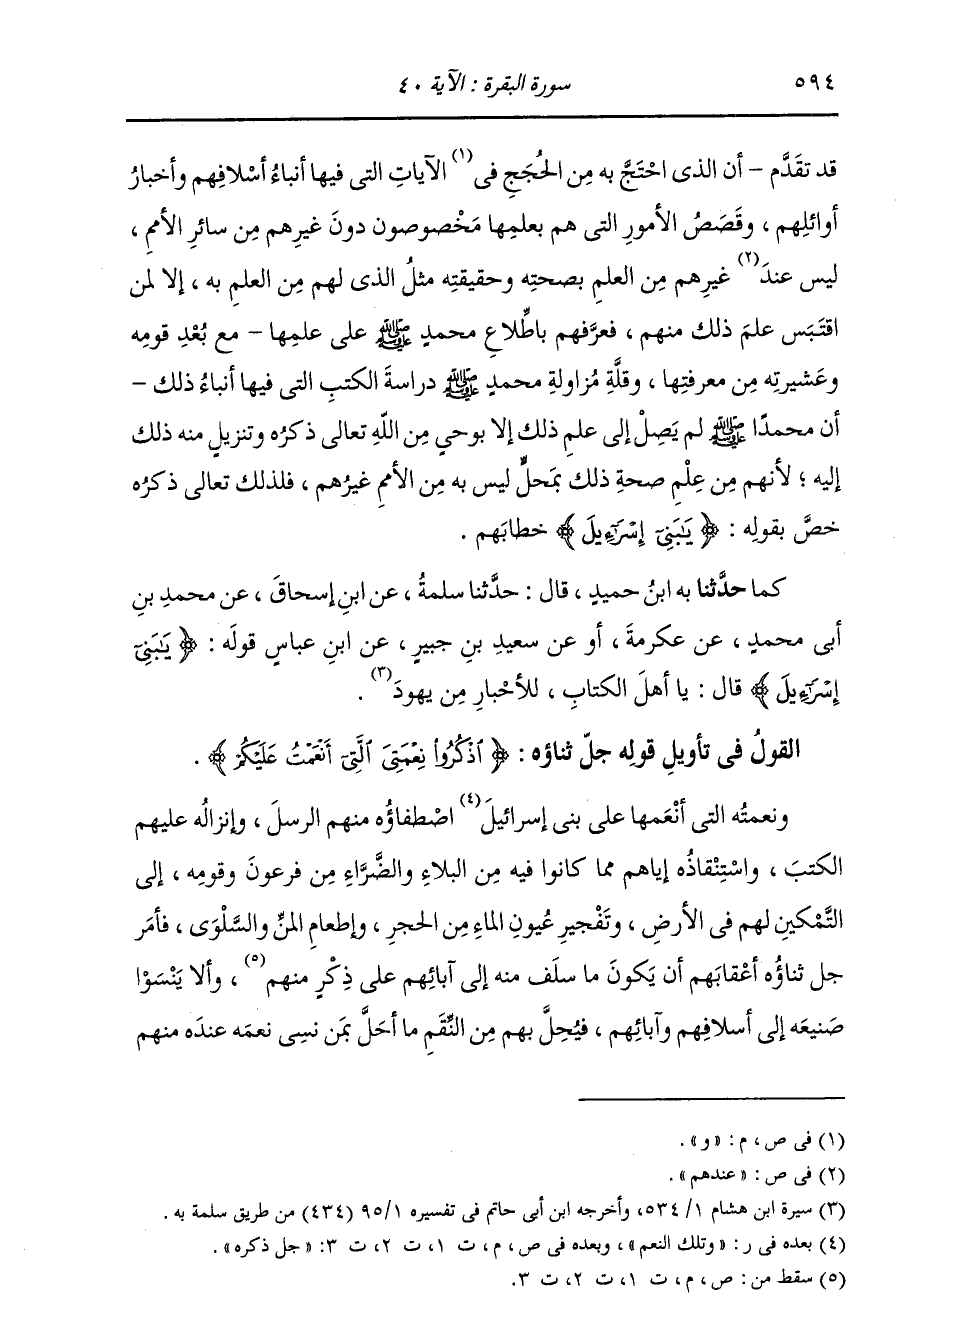 ٥٩٤
سورة البقرة : الآية ٤٠
قد تقَدَّم – أن الذى احْتَجَّ به مِن الحُجَجِ فى(١) الآياتِ التى فيها أنباءُ أسْلافِهم وأخبارُ
أوائلِهم ، وقَصَصُ الأمورِ التى هم بعلمِها مَخْصوصون دونَ غيرِهم مِن سائرِ الأممِ ،
ليس عندَ(٢) غيرِهم مِن العلمِ بصحتِه وحقيقتِه مثلُ الذى لهم مِن العلمِ به ، إلا لمن
اقتَبَس علمَ ذلك منهم ، فعرَّفهم باطِّلاعِ محمدٍ ﷺ على علمِها – مع بُعْدِ قومِه
وعَشيرتِه مِن معرفتِها ، وقلَّةِ مُزاولةِ محمدٍ ﷺ دراسةَ الكتبِ التى فيها أنباءُ ذلك –
أن محمدًا ﷺ لم يَصِلْ إلى علمِ ذلك إلا بوحيٍ مِن اللَّهِ تعالى ذكرُه وتنزيلٍ منه ذلك
إليه ؛ لأنهم مِن عِلْمِ صحةِ ذلك بمَحلٍّ ليس به مِن الأممِ غيرُهم ، فلذلك تعالى ذكرُه
خصَّ بقولِه : ﴿ يَٰبَنِىٓ إِسْرَٰٓءِيلَ ﴾ خطابَهم .
كما حدَّثنا به ابنُ حميدٍ ، قال : حدَّثنا سلمةُ ، عن ابنِ إسحاقَ ، عن محمدِ بنِ
أبى محمدٍ ، عن عكرمةَ ، أو عن سعيدِ بنِ جبيرٍ ، عن ابنِ عباسٍ قولَه : ﴿ يَٰبَنِىٓ
إِسْرَٰٓءِيلَ ﴾ قال : يا أهلَ الكتابِ ، للأحْبارِ مِن يهودَ(٣) .
القولُ فى تأويلِ قولِه جلّ ثناؤه : ﴿ ٱذْكُرُوا۟ نِعْمَتِىَ ٱلَّتِىٓ أَنْعَمْتُ عَلَيْكُمْ ﴾ .
ونعمتُه التى أنْعَمها على بنى إسرائيلَ(٤) اصْطفاؤُه منهم الرسلَ ، وإنزالُه عليهم
الكتبَ ، واسْتِنْقاذُه إياهم مما كانوا فيه مِن البلاءِ والضَّرَّاءِ مِن فرعونَ وقومِه ، إلى
التَّمْكينِ لهم فى الأرضِ ، وتَفْجيرِ عُيونِ الماءِ مِن الحجرِ ، وإطعامِ المنِّ والسَّلْوَى ، فأمَر
جل ثناؤُه أعْقابَهم أن يَكونَ ما سلَف منه إلى آبائِهم على ذِكْرٍ منهم(٥) ، وألا يَنْسَوْا
صَنيعَه إلى أسلافِهم وآبائِهم ، فيُحِلَّ بهم مِن النِّقَمِ ما أحَلَّ بمَن نسِى نعمَه عندَه منهم
(١) فى ص ، م : «و» .
(٢) فى ص : «عندهم» .
(٣) سيرة ابن هشام ١/ ٥٣٤، وأخرجه ابن أبى حاتم فى تفسيره ٩٥/١ (٤٣٤) من طريق سلمة به .
(٤) بعده فى ر : «وتلك النعم» ، وبعده فى ص ، م ، ت ١، ت ٢، ت ٣: «جل ذكره» .
(٥) سقط من : ص ، م ، ت ١، ت ٢، ت ٣.